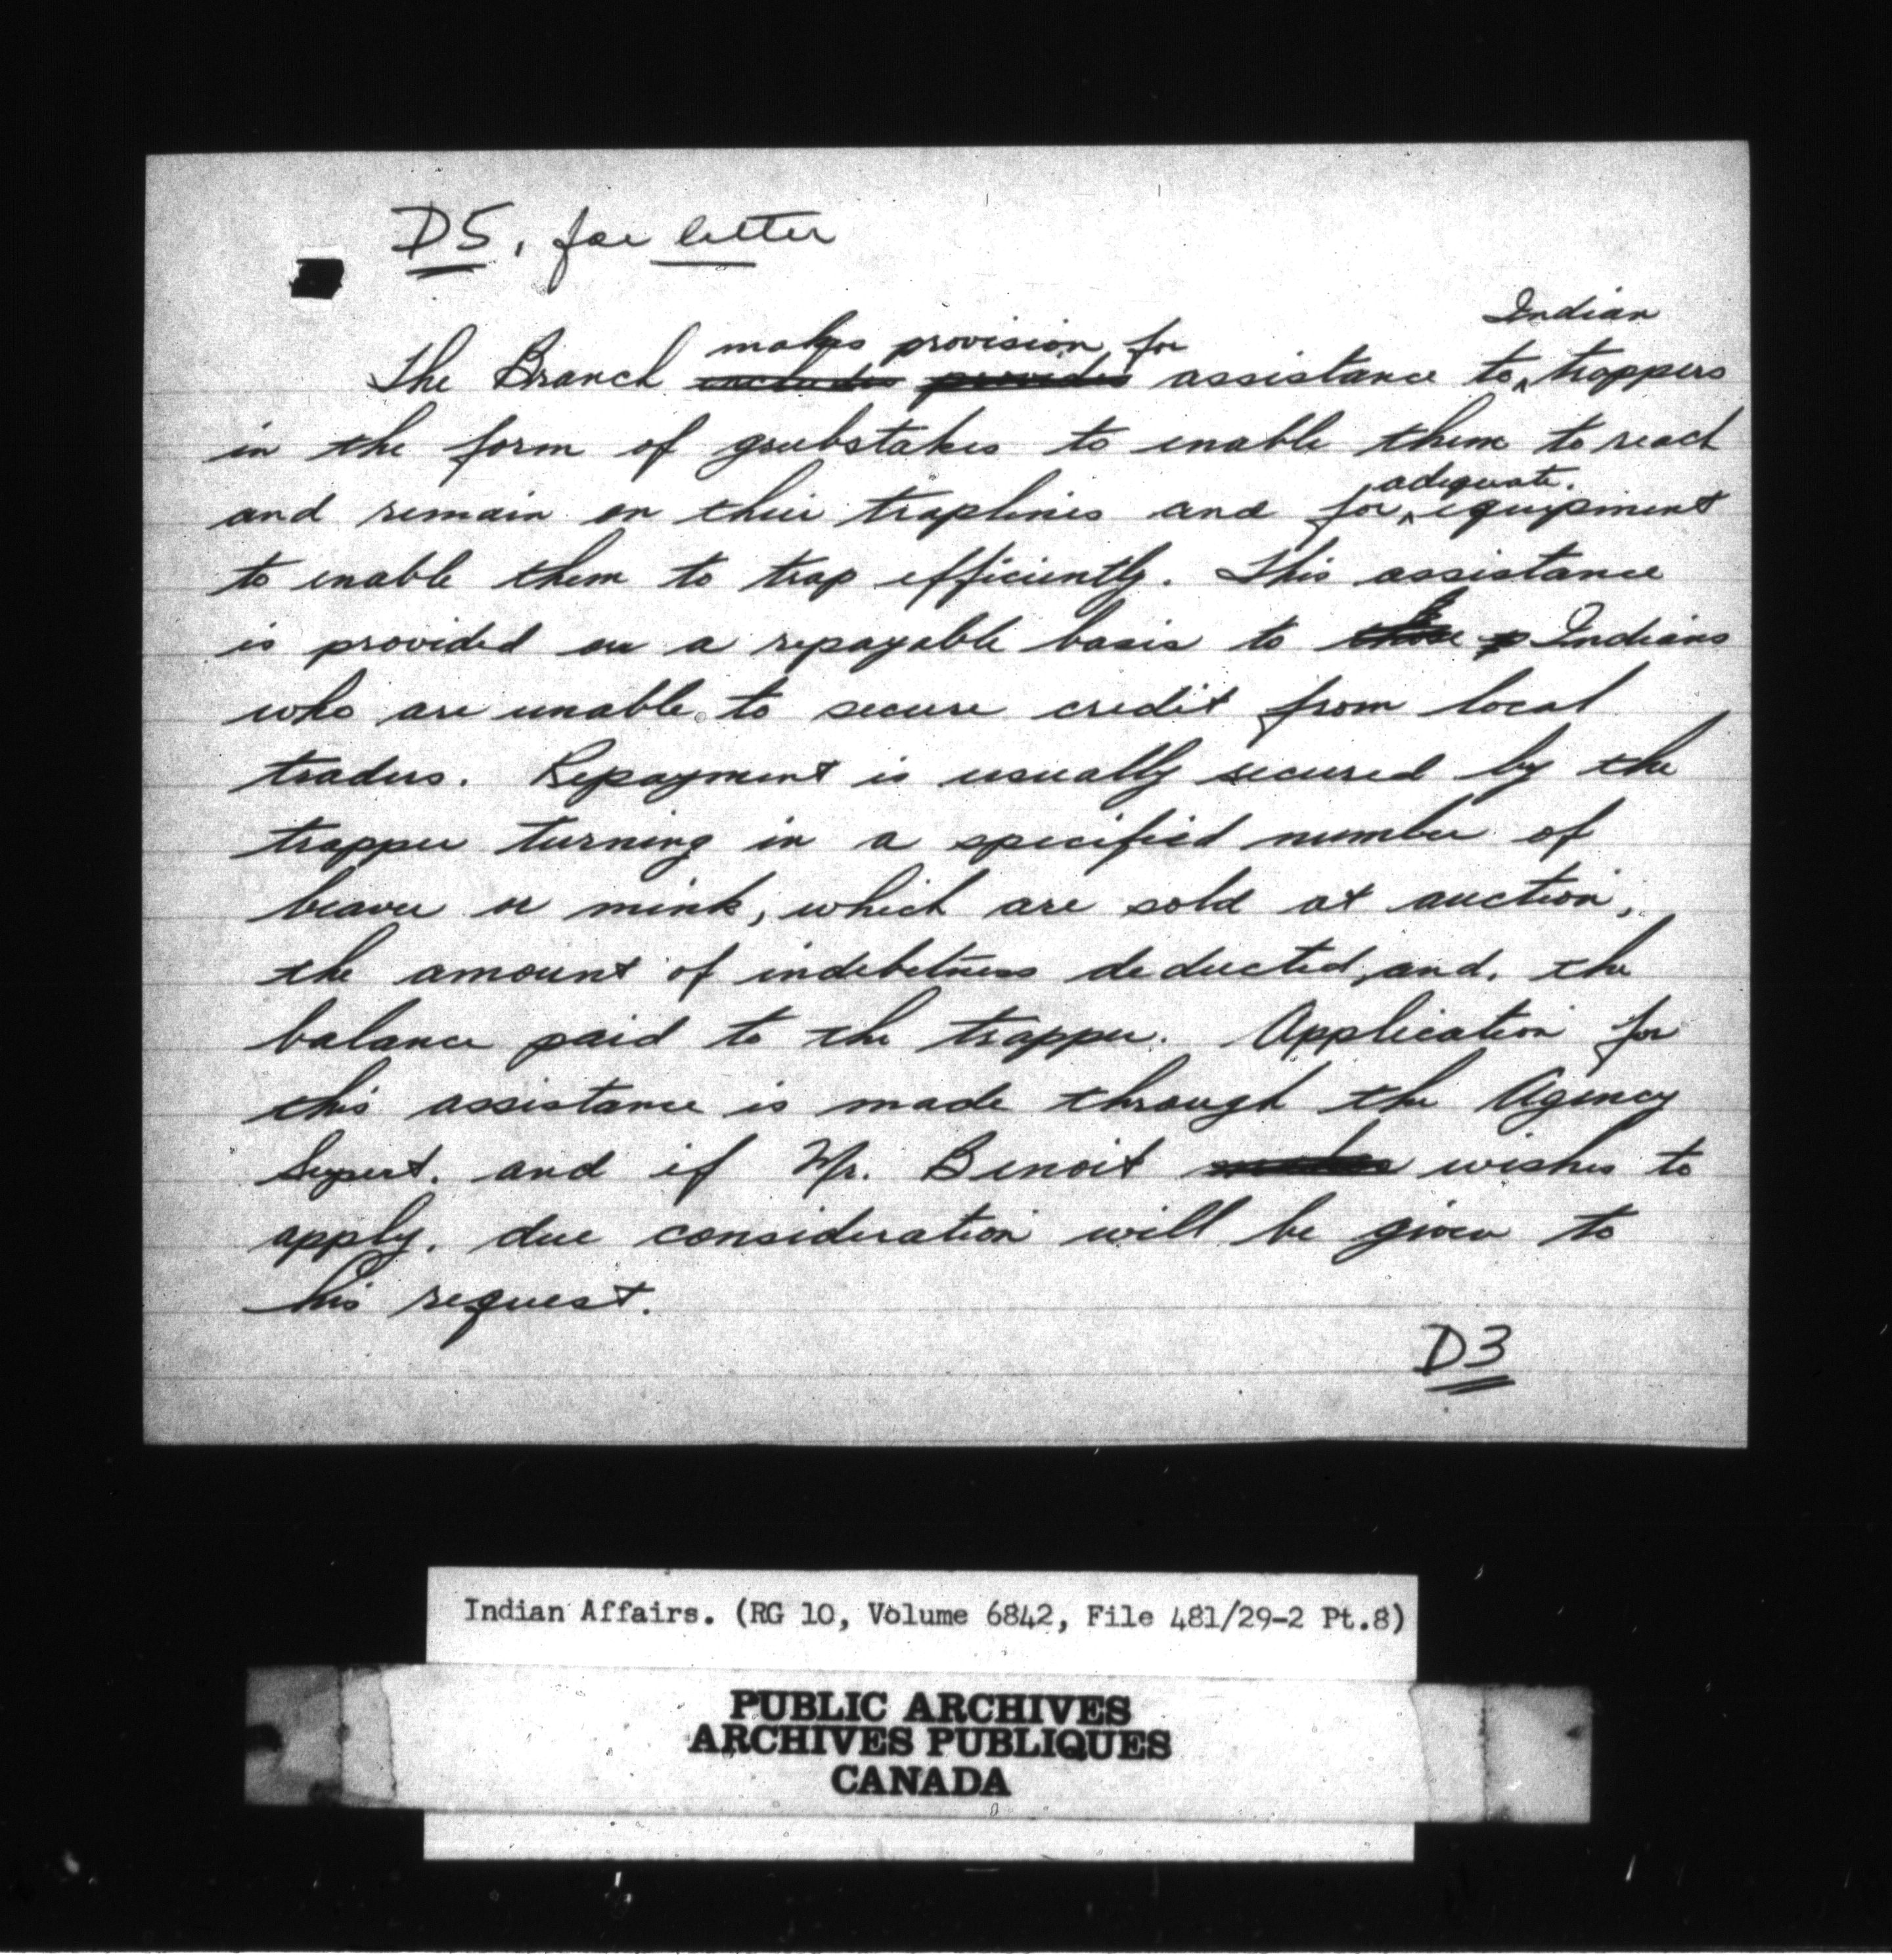 D5, for letter
Indian
makes provision for
The Branch includes provides assistance to trappers
in the form of grubstakes to enable them to reach
adequate
and remain on their traplines and for equipment
to enable them to trap efficiently. This assistance
is provided on a repayable basis to those Indians
who are unable to secure credit from local
traders. Repayment is usually secured by the
trapper turning in a specified number of
beaver or mink, which are sold at auction,
the amount of indebetness deducted, and, the
balance paid to the trapper. Application for
this assistance is made through the Agency
Supert. and if Mr. Benoit wishes to
apply, due consideration will be given to
his request.
D3
Indian Affairs. (RG 10, Volume 6842, File 481/29-2 Pt.8)
PUBLIC ARCHIVES
ARCHIVES PUBLIQUES
CANADA